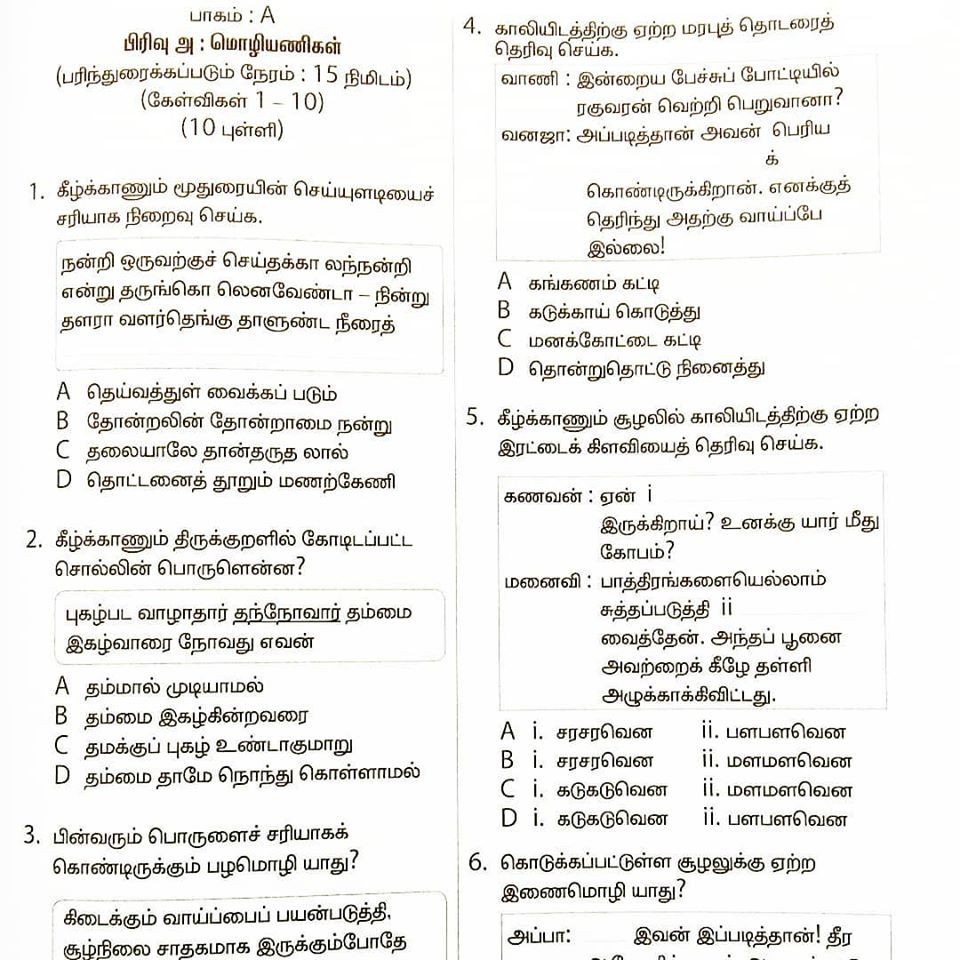 பாகம் : A
பிரிவு அ : மொழியணிகள்
(பரிந்துரைக்கப்படும் நேரம் : 15 நிமிடம்)
(கேள்விகள் 1 – 10)
(10 புள்ளி)
1. கீழ்க்காணும் மூதுரையின் செய்யுளடியைச்
சரியாக நிறைவு செய்க.
நன்றி ஒருவற்குச் செய்தக்கா லந்நன்றி
என்று தருங்கொ லெனவேண்டா – நின்று
தளரா வளர்தெங்கு தாளுண்ட நீரைத்
A தெய்வத்துள் வைக்கப் படும்
B தோன்றலின் தோன்றாமை நன்று
C தலையாலே தான்தருத லால்
D தொட்டனைத் தூறும் மணற்கேணி
2. கீழ்க்காணும் திருக்குறளில் கோடிடப்பட்ட
சொல்லின் பொருளென்ன?
புகழ்பட வாழாதார் தந்நோவார் தம்மை
இகழ்வாரை நோவது எவன்
A தம்மால் முடியாமல்
B தம்மை இகழ்கின்றவரை
C தமக்குப் புகழ் உண்டாகுமாறு
D தம்மை தாமே நொந்து கொள்ளாமல்
3. பின்வரும் பொருளைச் சரியாகக்
கொண்டிருக்கும் பழமொழி யாது?
கிடைக்கும் வாய்ப்பைப் பயன்படுத்தி,
சூழ்நிலை சாதகமாக இருக்கும்போதே
4. காலியிடத்திற்கு ஏற்ற மரபுத் தொடரைத்
தெரிவு செய்க.
வாணி : இன்றைய பேச்சுப் போட்டியில்
ரகுவரன் வெற்றி பெறுவானா?
வனஜா: அப்படித்தான் அவன் பெரிய
க்
கொண்டிருக்கிறான். எனக்குத்
தெரிந்து அதற்கு வாய்ப்பே
இல்லை!
A கங்கணம் கட்டி
B கடுக்காய் கொடுத்து
C மனக்கோட்டை கட்டி
D தொன்றுதொட்டு நினைத்து
5. கீழ்க்காணும் சூழலில் காலியிடத்திற்கு ஏற்ற
இரட்டைக் கிளவியைத் தெரிவு செய்க.
கணவன் : ஏன் i
இருக்கிறாய்? உனக்கு யார் மீது
கோபம்?
மனைவி : பாத்திரங்களையெல்லாம்
சுத்தப்படுத்தி ii
வைத்தேன். அந்தப் பூனை
அவற்றைக் கீழே தள்ளி
அழுக்காக்கிவிட்டது.
A i. சரசரவென ii. பளபளவென
B i. சரசரவென ii. மளமளவென
C i. கடுகடுவென ii. மளமளவென
D i. கடுகடுவென ii. பளபளவென
6. கொடுக்கப்பட்டுள்ள சூழலுக்கு ஏற்ற
இணைமொழி யாது?
அப்பா: இவன் இப்படித்தான்! தீர